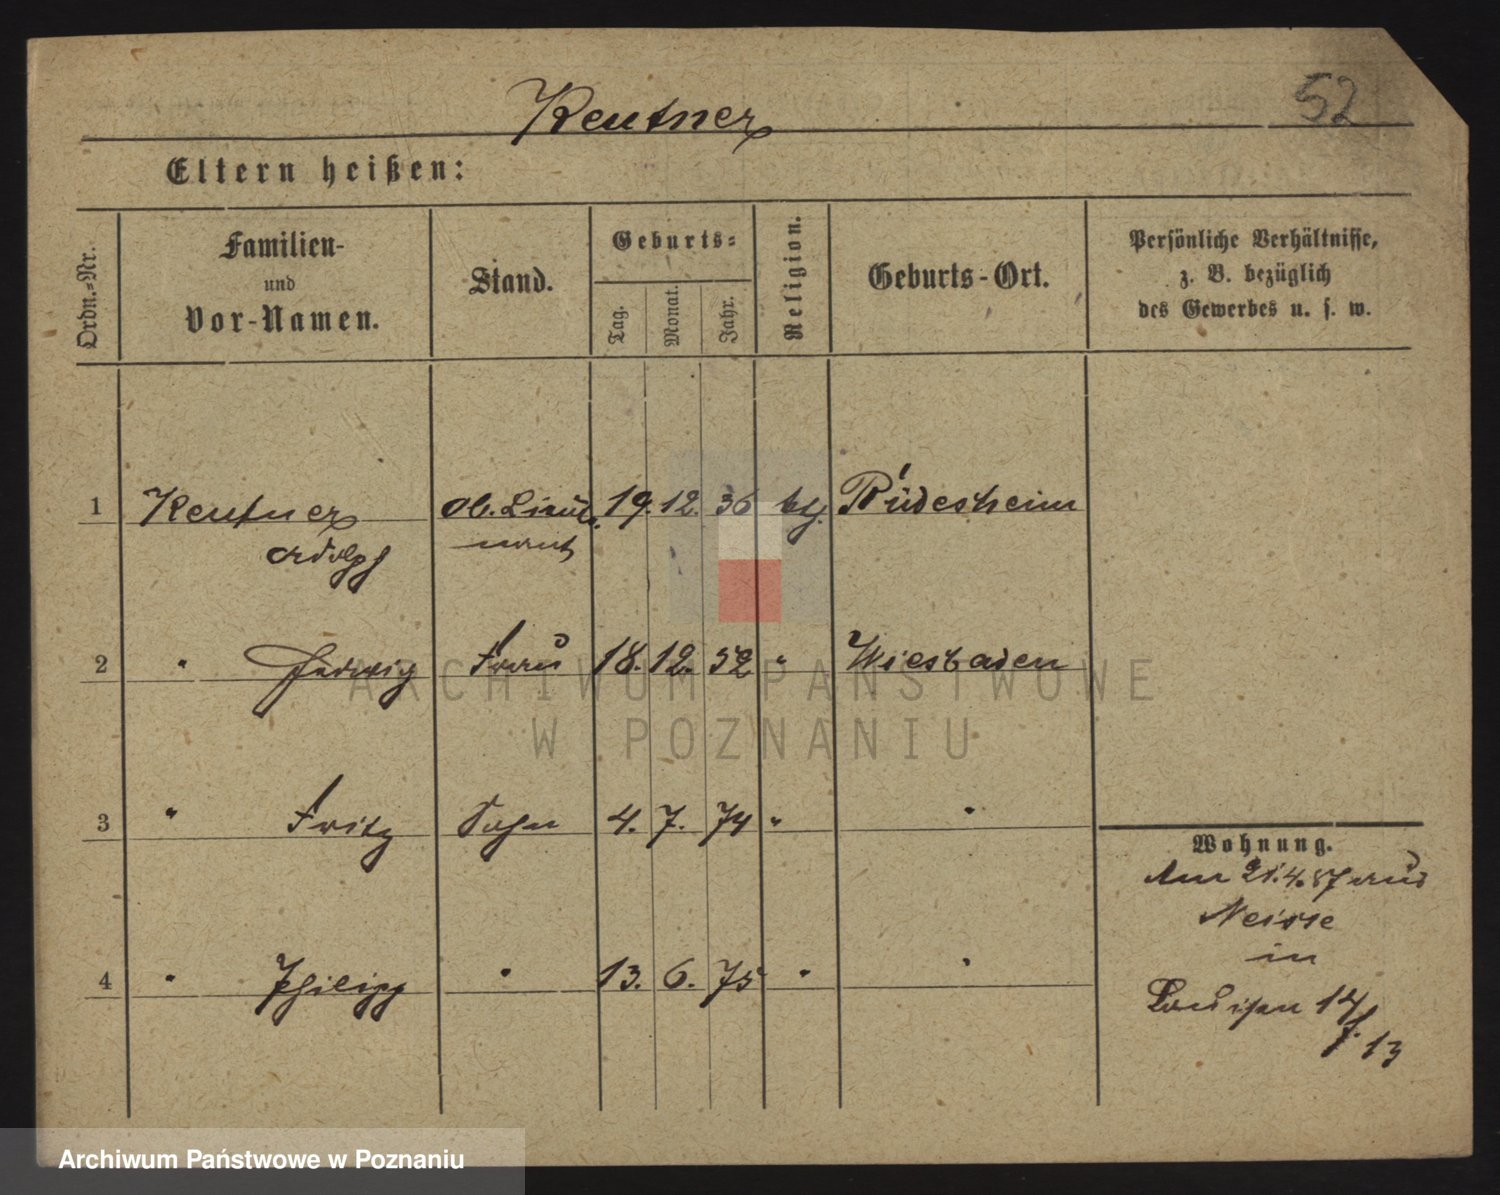 Keutner
52
Eltern heißen:
Ordn.-Nr.
Familien-
und
Vor-Namen.
Stand.
Geburts-
Tag.
Monat.
Jahr.
Religion.
Geburts-Ort.
Persönliche Verhältnisse,
z. B. bezüglich
des Gewerbes u. s. w.
1 Keutner Ob. Lieut. 19. 12. 36 ktl. Rüdesheim
Adolph nant
2 " Hedwig Frau 18. 12. 52 " Wiesbaden
3 " Fritz Sohn 4. 7. 74 " "
4 " Philipp " 13. 6. 75 " "
Wohnung.
Am 21.4.87 aus
Neisse
in
Louisen 14
f. 13
ARCHIWUM PAŃSTWOWE
W POZNANIU
Archiwum Państwowe w Poznaniu